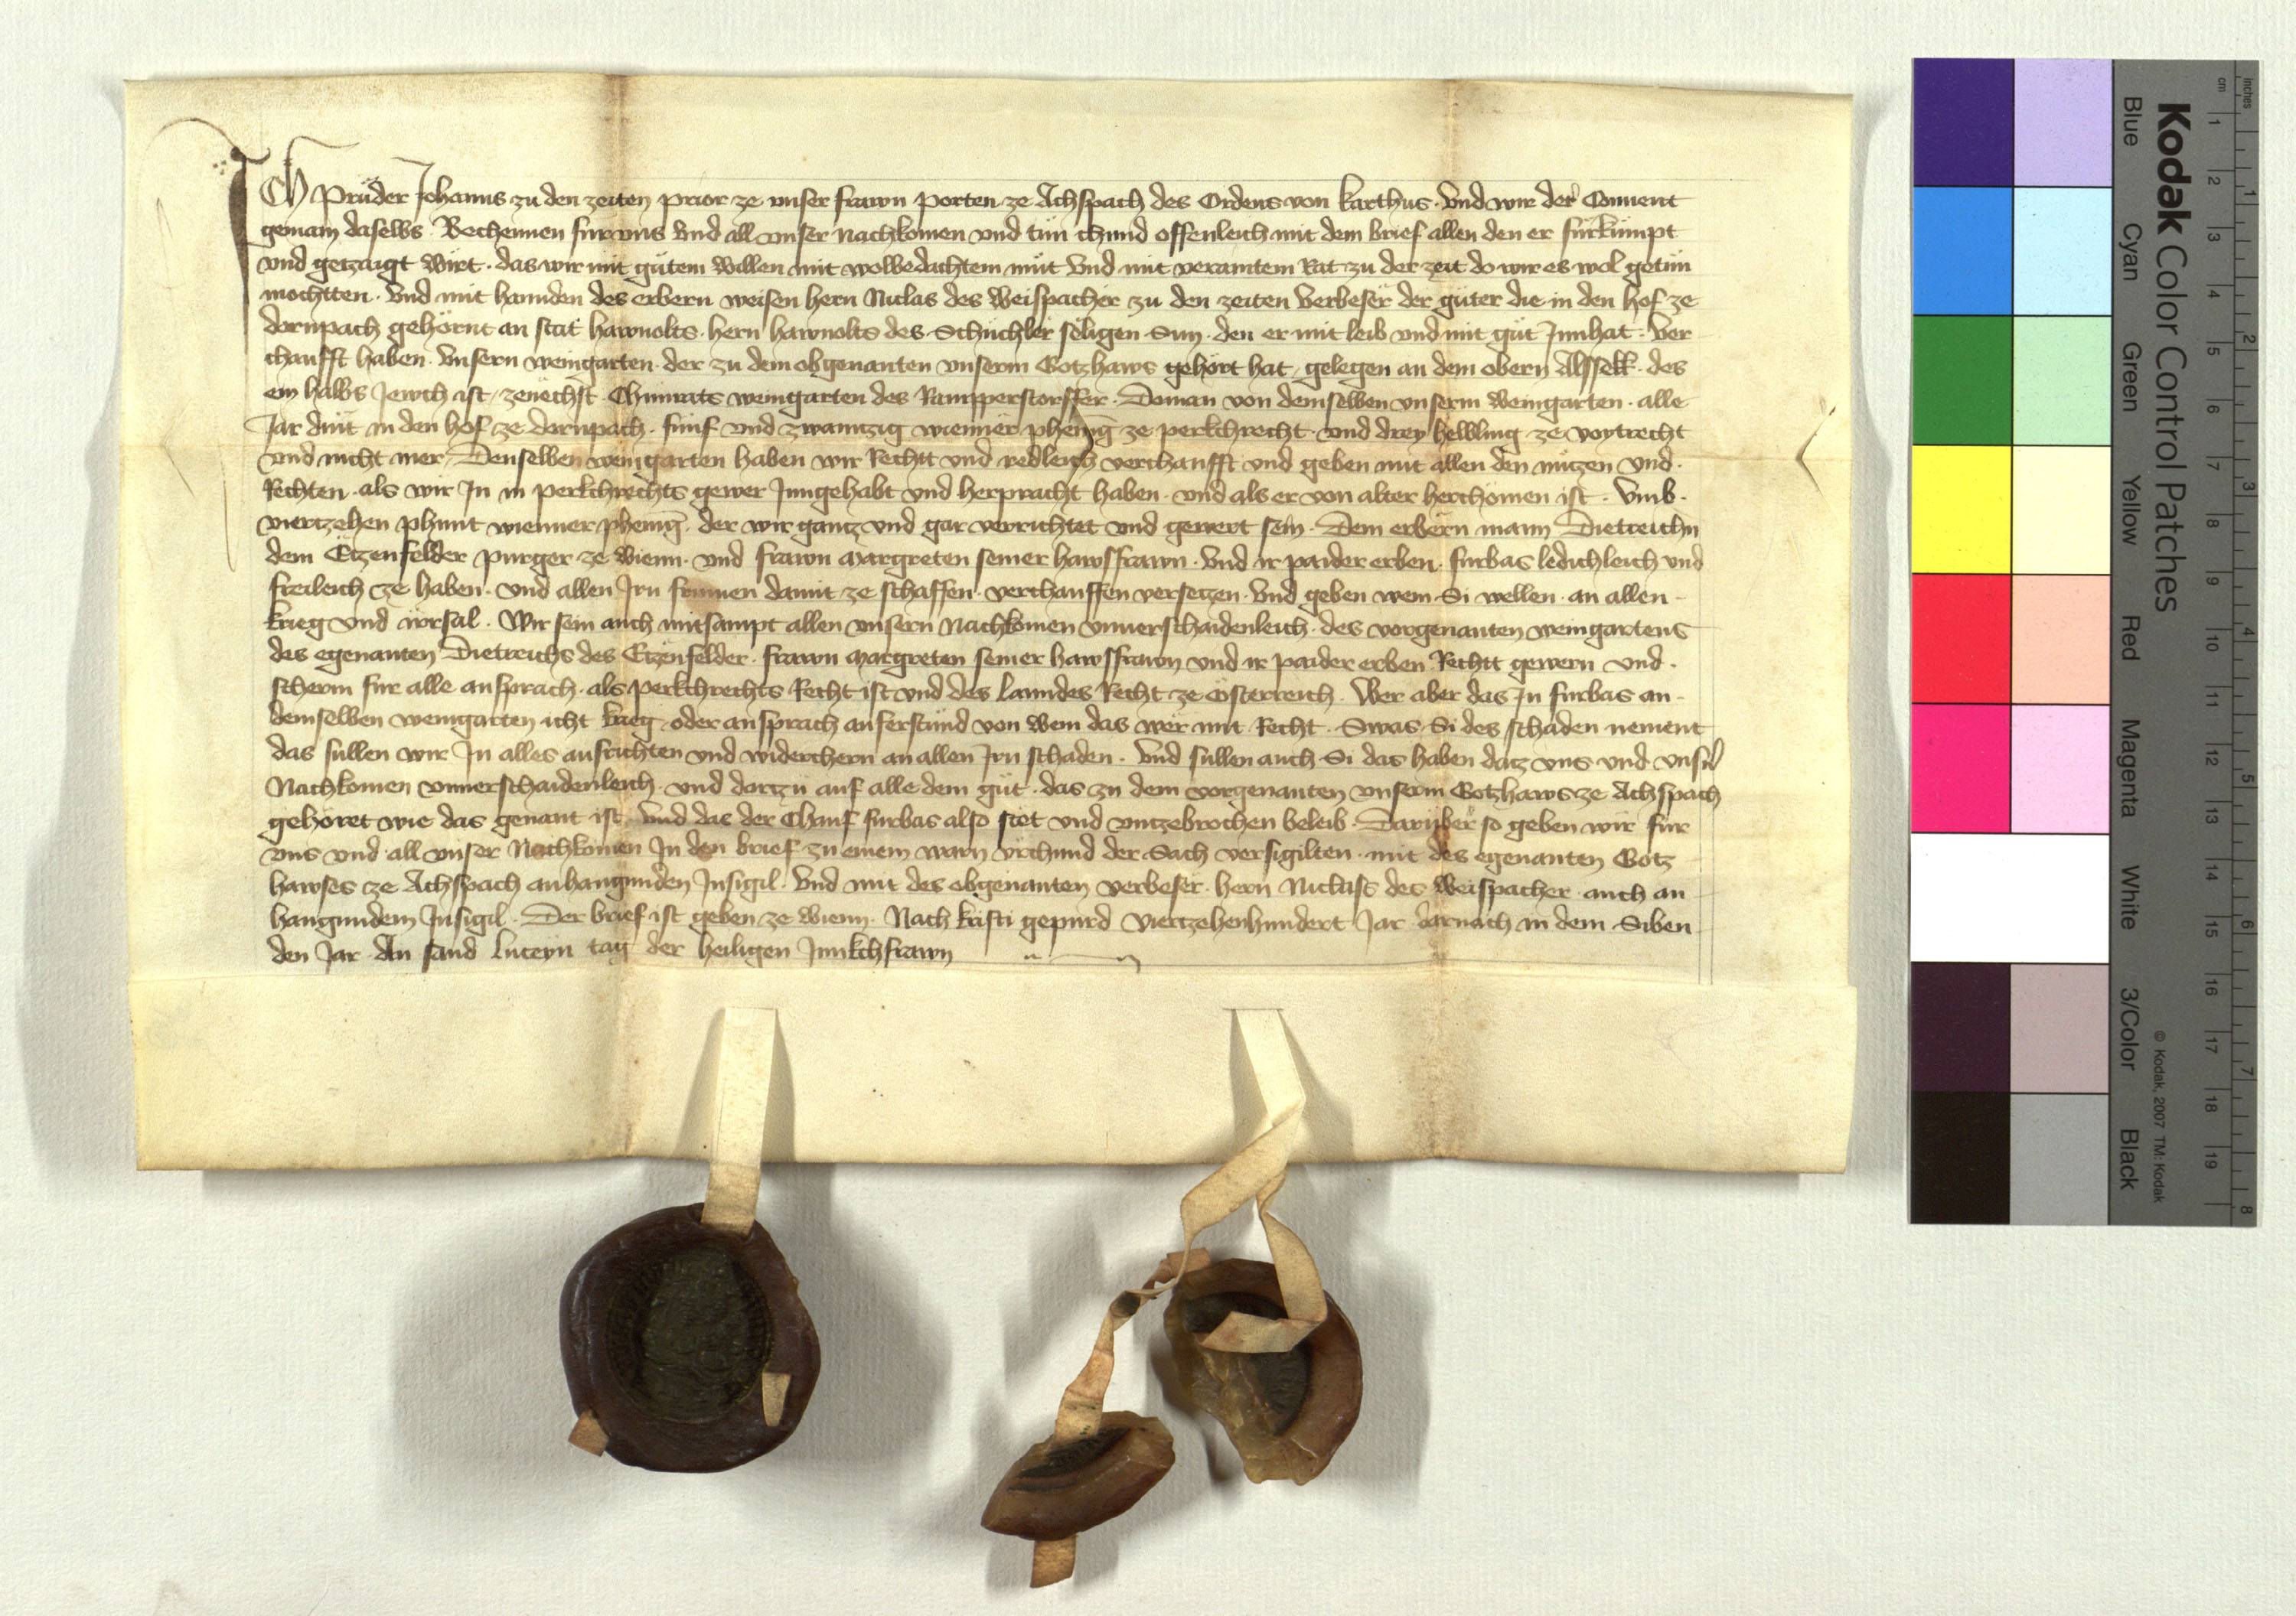 ICH Prûder Johanns zu den zeiten prior ze unser frawn porten ze Achspach des Ordens von karthus · Und wir der Conuent
gemain daselbs · Bechennen fur uns und all unser nachkomen und tûn chund offenleich mit dem brief allen den er fûrkûmpt
und getzaigt wirt · das wir mit gûtem willen mit wolbedachtem mût und mit veraintem Rat zu der zeit do wir es wol getûn
mochtten · Und mit hannden des erbern weisen hern Niclas des Weispacher zu den zeiten Verbeser der gûter die in den hof ze
dornpach gehörnt an stat hawnolts · hern hawnolts des Schûchler seligen Sun · den er mit leib und mit gût Innhat · Ver
chaufft haben · Unsern weingarten der zu dem obgenanten unserm Gotzhaws gehört hat / gelegen an dem obern Alssekk · des
ein halbs Jewch ist / zenechst Chunrats weingarten des Ramperstorffer · Doman von demselben unserm weingarten · alle
Jar dint in den hof ze dornpach · fûnf und zwaintzig wienner phenig ze perkchrecht · und drey helbling ze voytrecht
und nicht mer / Denselben weingarten haben wir Rechtt und redleich verchaufft und geben mit allen den nûtzen und ·
Rechten · als wir In in perkchrechts gewer Inngehabt und herpracht haben · und als er von alter herchomen ist · Umb ·
viertzehen phunt wienner phenig · der wir gantz und gar verrichtet und gewert sein · Dem erbern mann Dietreichn
dem Etzenfelder purger ze wienn · und frawn Margreten seiner hawsfrawn · Und ir paider erben · furbas ledichleich und
freileich ze haben · und allen Irn frumen damit ze schaffen verchauffen versetzen · Und geben wem Si wellen · an allen ·
krieg und irrsal · Wir sein auch mitsampt allen unsern Nachkomen unuerschaidenleich · des vorgenanten weingartens
des egenanten Dietreichs des Etzenfelder · frawn Margreten seiner hawsfrawn und ir paider erben Rechtt gewern und ·
scherm fur alle ansprach · als perkchrechts Recht ist und des Lanndes Recht ze Österreich · Wer aber das In furbas an ·
demselben weingarten icht krieg oder ansprach auferstûnd von wem das wer mit Recht · Swas Si des schaden nement
das sullen wir In alles ausrichten und widerchern an allen Irn schaden · Und sullen auch Si das haben datz uns und unsern
Nachkomen unuerschaidenleich · und dartzû auf alle dem gût · das zu dem vorgenanten unserm Gotzhaws ze Achspach
gehöret wie das genant ist · Und das der Chauf furbas also stet und untzebrochen beleib · Darûber so geben wir fur
uns und all unser Nachkomen In den brief zu einem warn urchund der Sach versigilten · mit des egenanten Gotz
hawses ze Achspach anhangunden Insigil · Und mit des obgenanten verbeser hern Niclass des Weispacher auch an
hangundem Insigil · Der brief ist geben ze wienn · Nach kristi gepurd viertzehenhundert Jar darnach in dem Siben
den Jar · An sand Luceyn tag der heiligen Junkchfrawn
Kodak Color Control Patches
Blue Cyan Green Yellow Red Magenta White 3/Color Black
© Kodak, 2007 TM: Kodak
cm 1 2 3 4 5 6 7 8 9 10 11 12 13 14 15 16 17 18 19
inches 1 2 3 4 5 6 7 8